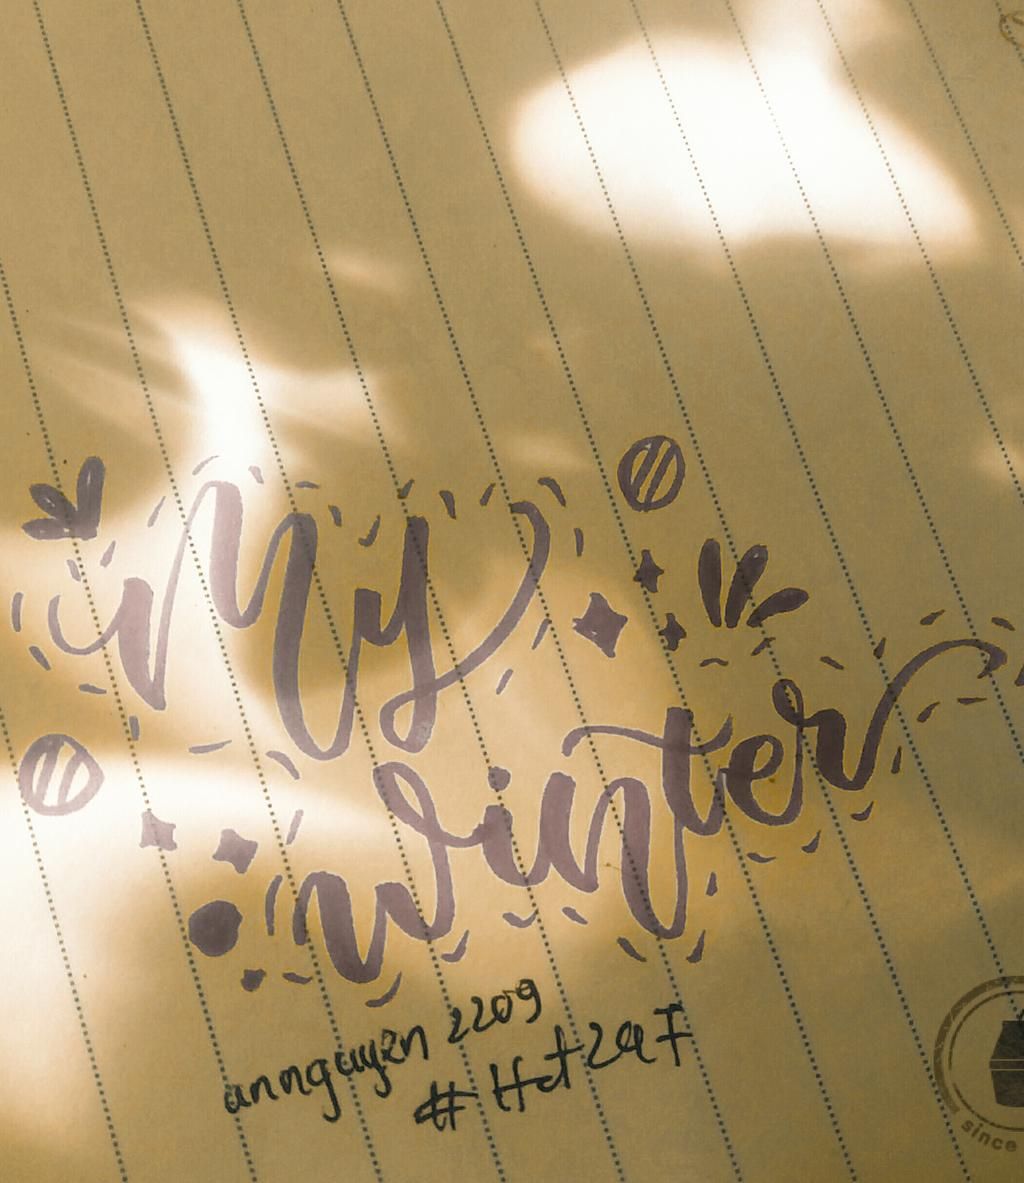 My
winter
annguyen 2209
since